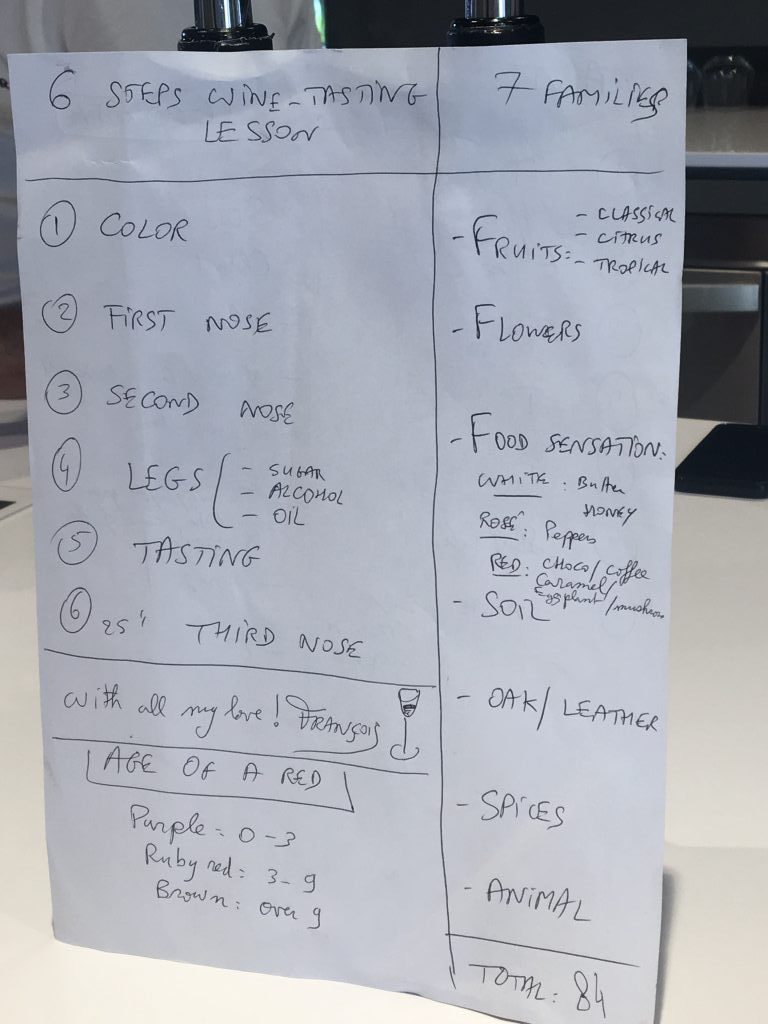 6 STEPS WINE-TASTING
LESSON
① COLOR
② FIRST NOSE
③ SECOND NOSE
④ LEGS
- SUGAR
- ALCOHOL
- OIL
⑤ TASTING
⑥ 25' THIRD NOSE
With all my love! FRANÇOIS
AGE OF A RED
Purple = 0-3
Ruby red: 3-9
Brown: over 9
7 FAMILIES
- FRUITS:
- CLASSICAL
- CITRUS
- TROPICAL
- FLOWERS
- FOOD SENSATION:
WHITE : Butter
HONEY
ROSÉ : Peppers
RED: CHOCO/Coffee
Caramel/
Eggplant/mushroom
- SOIL
- OAK/LEATHER
- SPICES
- ANIMAL
TOTAL: 84